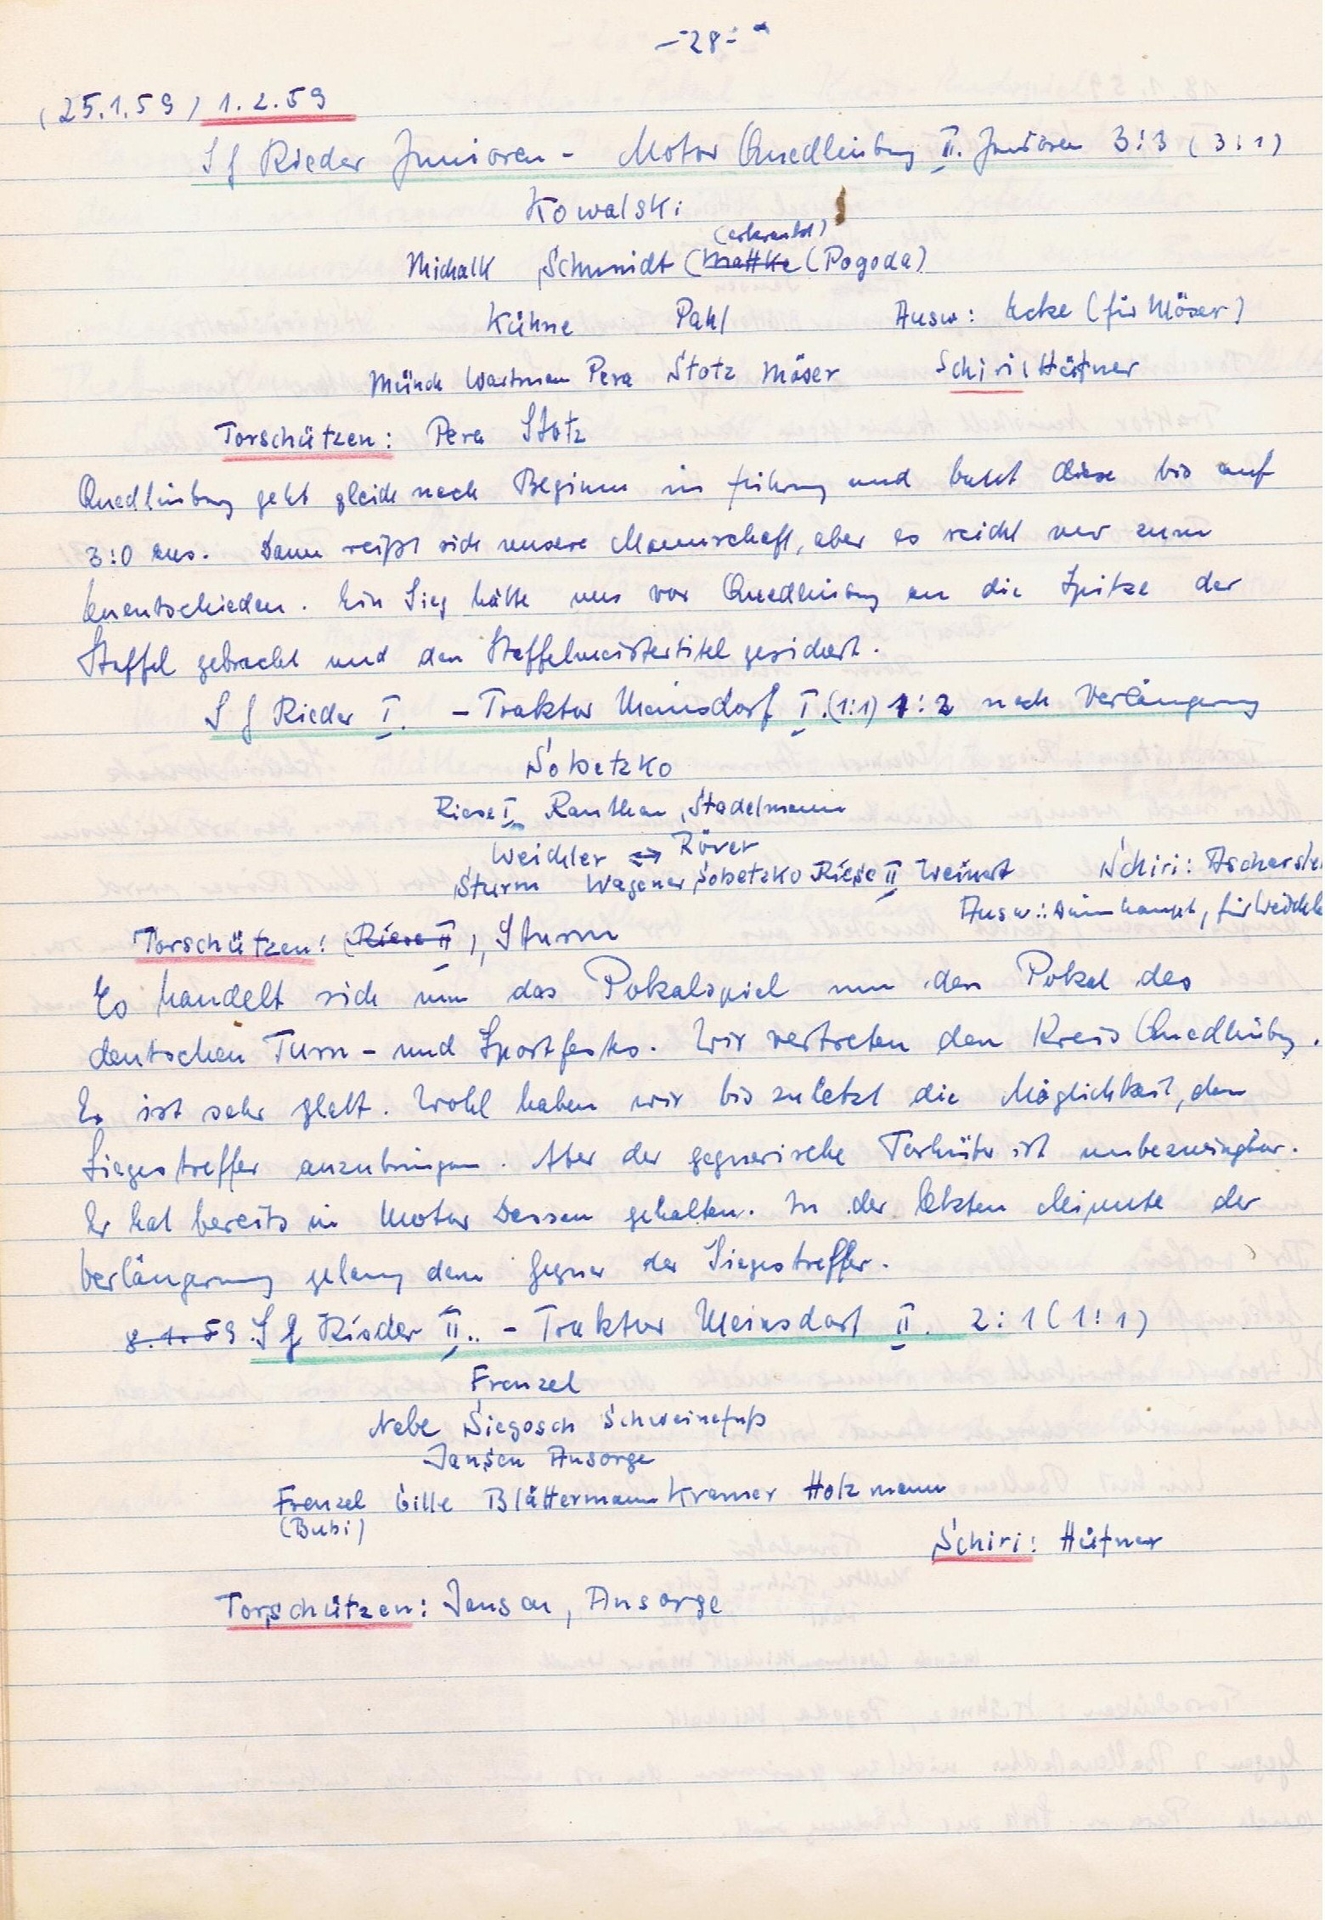 - 28 -
(25.1.59) 1.2.59
Sg Rieder Junioren - Motor Quedlinburg II. Junioren 3:3 (3:1)
Kowalski
(erkrankt)
Michalk Schmidt (Mattke (Pogoda)
Kühne Pahl Ausw: Ecke (für Möser)
Münch Wartman Pera Stotz Möser Schiri: Hüfner
Torschützen: Pera Stotz
Quedlinburg geht gleich nach Beginn in Führung und baut diese bis auf
3:0 aus. Dann reißt sich unsere Mannschaft, aber es reicht nur zum
Unentschieden. Ein Sieg hätte uns vor Quedlinburg an die Spitze der
Staffel gebracht und den Staffelmeistertitel gesichert.
Sg Rieder I. - Traktor Meinsdorf I. (1:1) 1:2 nach Verlängerung
Sobetzko
Riese I Ranthan Stadelmann
Weichler ↔ Röver
Sturm Wagener Sobetzko Riese II Weinert Schiri: Aschersle
Ausw.: Dannhaupt, für Weichle
Torschützen: (Riese II), Sturm
Es handelt sich um das Pokalspiel um den Pokal des
deutschen Turn- und Sportfestes. Wir vertreten den Kreis Quedlinbg.
Es ist sehr glatt. Wohl haben wir bis zuletzt die Möglichkeit, den
Siegestreffer anzubringen. Aber der gegnerische Torhüter ist unbezwingbar.
Er hat bereits in Motor Dessau gehalten. In der letzten Minute der
Verlängerung gelang dem Gegner der Siegestreffer.
8.1.59 Sg Rieder II. - Traktor Meinsdorf II. 2:1 (1:1)
Frenzel
Nebe Siegosch Schweinefuß
Jansen Ansorge
Frenzel Gille Blättermann Kramer Holzmann
(Bubi)
Schiri: Hüfner
Torschützen: Jansen, Ansorge